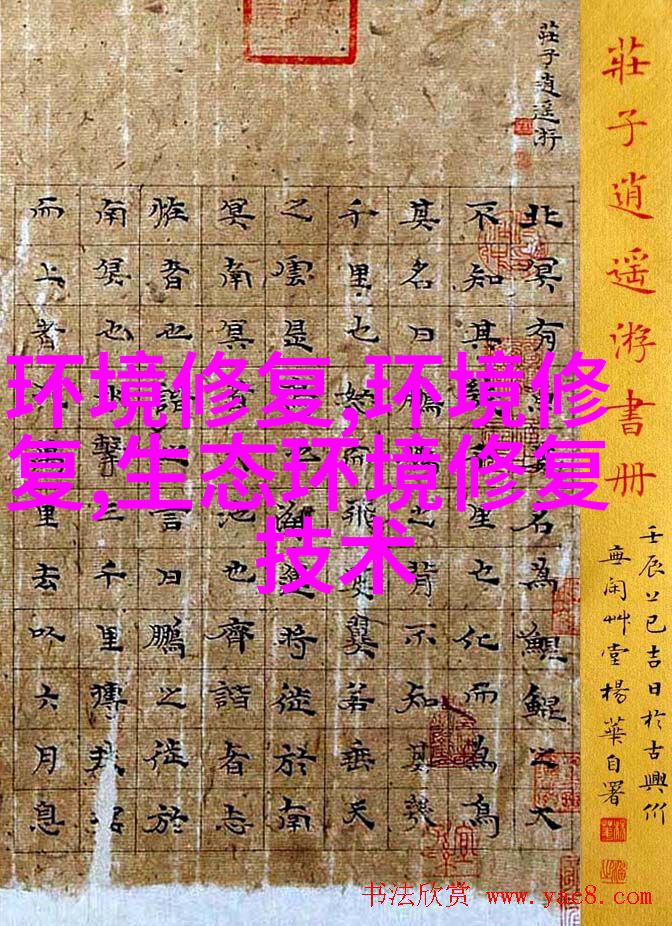 环境修复,环境修
复,生态环境修复
技术
莊子逍遥游書册
壬辰上巳吉日於古興
無闲艸堂楊華自署
莊子逍遥游
北冥有魚其名為鯤鯤之大
不知其幾千里也化而為鳥
其名曰鵬鵬之背不知其幾
千里也怒而飛其翼若垂天
之雲是鳥也海運將徙於南
冥南冥者天池也齊諧者志
恠者也諧之言曰鵬之徙於
南冥也水擊三千里摶扶搖
而上者九萬里去以六月息
书法欣赏 www.yac8.com